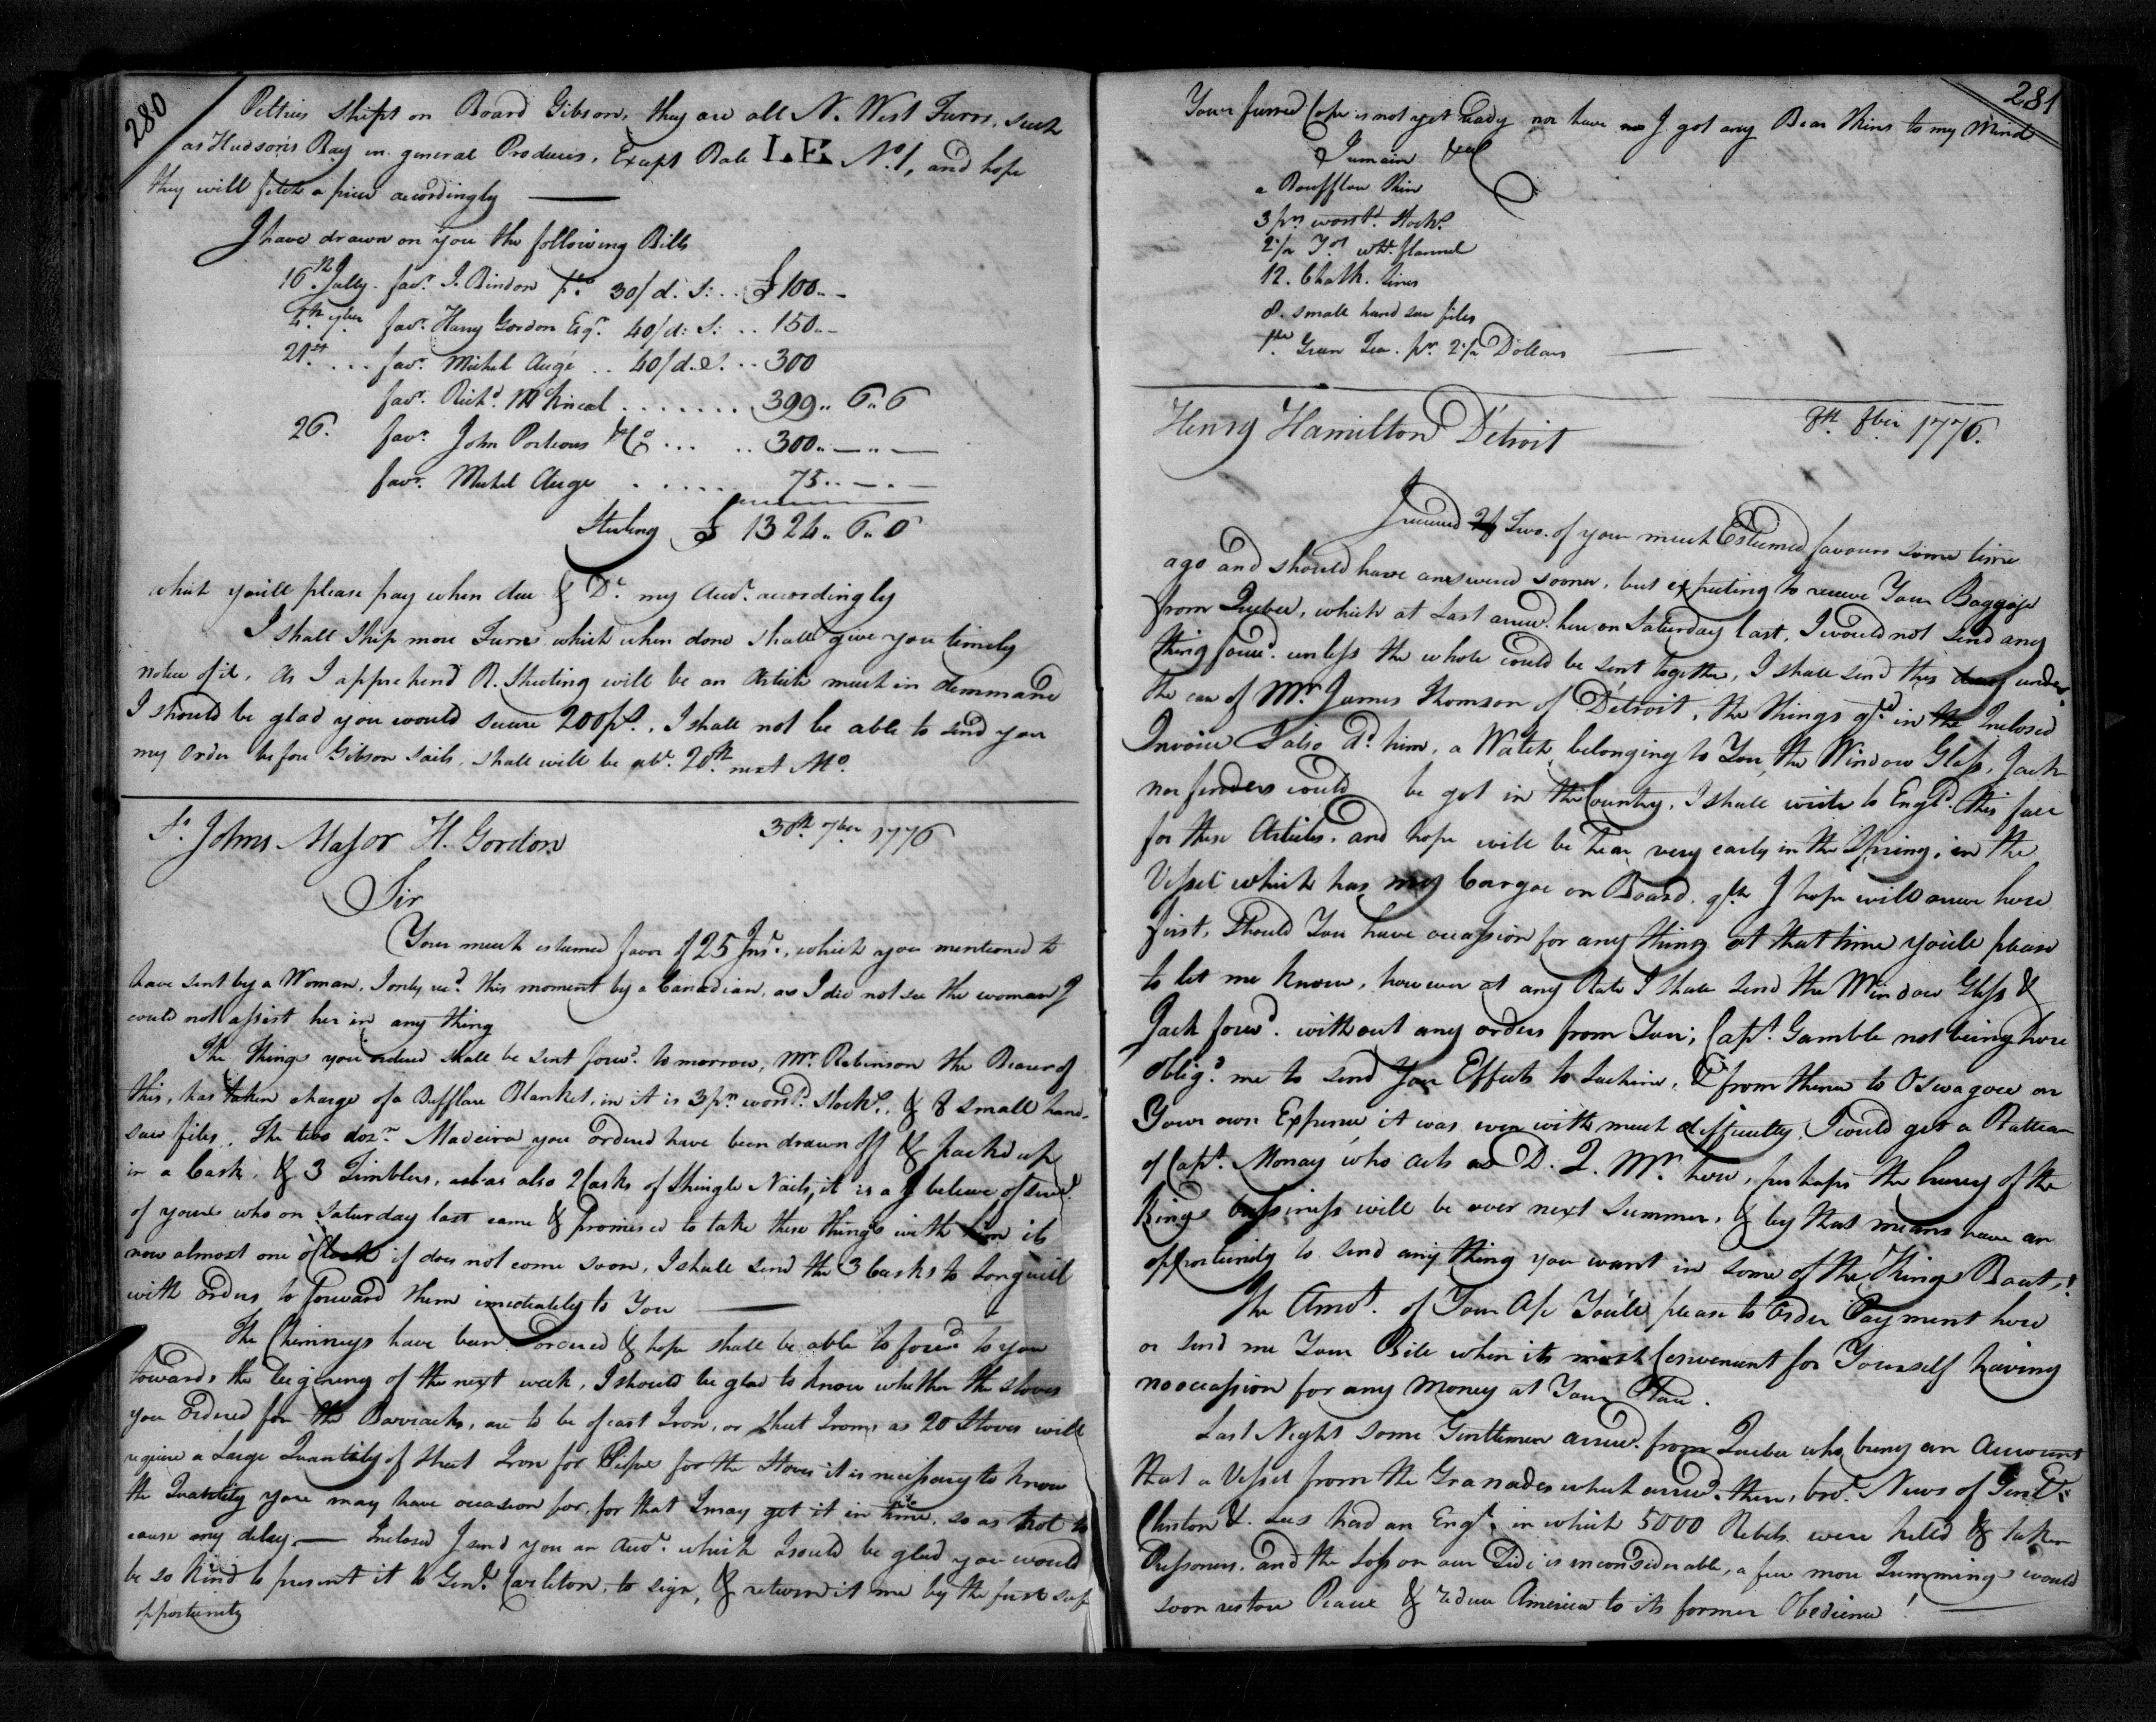 280
Peltries Shipt on Board Gibson, they are all N. West Furrs, such
as Hudson's Bay in general Produces, Exept Bale LE No. 1, and hope
they will fetch a price accordingly
I have drawn on you the following Bills
16th July. favr. J. Bindon 30/d. S: .. £100..-
4th 7ber favr. Harry Gordon Esqr. 40/d: S: .. 150..-
21st ... favr. Michel Augé .. 40/d. S. .. 300
favr. Richd. McNeal ....... 399.. 6.. 6
26. favr. John Porteous & Co ... .. 300..—..—
favr. Michel Auge ..... 75..—.—
Sterling £ 1324.. 6.. 6
which you'll please pay when due & Dr. my Acct. accordingly
I shall Ship more Furrs which when done shall give you timely
notice of it, As I apprehend R. Sheeting will be an Article much in demmand
I should be glad you would secure 200 ps., I shall not be able to send you
my Order before Gibson Sails, shall will be abt. 20th next Mo.
St. Johns Major H. Gordon 30th 7ber 1776
Sir
Your much esteemed favor of 25 Inst., which you mentioned to
have sent by a Woman, I only recd. this moment by a Canadian, as I did not see the woman I
could not assist her in any thing
The Things you ordered shall be sent forwd. tomorrow, Mr. Robinson the Bearer of
this, has taken charge of a Bufflare Blanket, in it is 3 pr. worstd. Stocks. & 8 small hand-
saw files. The two dozn. Madeira you ordered have been drawn off & packd up
in a Cask, & 3 Timblers, as also 2 Casks of Shingle Nails, it is a I beleive of
of yours who on Saturday last came & promised to take these things with him its
now almost one o'Clock if does not come soon, I shall send the 3 Casks to Longueil
with Orders to Forward them imediately to You
The Chimneys have been ordered & hope shall be able to forwd to you
towards the begining of the next week, I should be glad to know whether the stoves
you ordered for the Barracks, are to be of cast Iron, or sheet Iron, as 20 Stoves will
require a Large Quantity of sheet Iron for Pipes for the Stoves it is necessary to know
the Quantity you may have occasion for, for that I may get it in time, so as not to
cause any delay — Inclosed I send you an Acct. which I would be glad you would
be so kind to present it to Genl. Carleton, to sign, & return it me by the first safe
opportunity
281
Your furred Cape is not yet ready nor have I got any Bear Skins to my Mind
I remain &ca
a Boufflou Skin
3 prs. worstd. Stocks.
2 1/2 Yds wht. flannel
12. Chalk. Lines
8. small hand saw files
1 lb Green Tea. pr. 2 1/2 Dollars
Henry Hamilton Détroit 8th 8ber 1776.
I received Two. of your much Esteemed favours some time
ago and should have answered sooner, but expecting to receive Your Baggage
from Quebec, which at Last arrivd. here on Saturday last, I would not send any
thing forwd. unless the whole could be sent together, I shall send this under
the care of Mr. James Thomson of Détroit, the things in the Inclosed
Invoice I also Dd. him, a Watch belonging to You, the Window Glass, Jack
nor fenders could be got in the Country, I shall write to Engld. this fall
for these Articles, and hope will be hear very early in the Spring, in the
Vessel which has my Cargoe on Board I hope will arrive here
first, Should You have occassion for any thing at that time you'll please
to let me know, however at any Rate I shall send the Window Glass &
Jack forwd. without any orders from You; Capt. Gamble not being here
obligd. me to send Your Effects to Lachine, & from thence to Oswagoe on
Your own Expence, it was even with much difficulty I could get a Batteau
of Capt. Monay who acts as D. Q. Mr. here, perhaps the hurry of the
Kings bussiness will be over next Summer, & by that means have an
opportunity to send any thing you want in some of the Kings Boats,!
The Amot. of Your A/c You'll please to Order Payment here
or send me Your Bill when its most Convenient for Yourself having
no occassion for any Money at Your Place.
Last Night some Gentlemen arrivd. from Quebec who bring an Account
that a Vessel from the Granades which arrivd. there, brot. News of Genls.
Clinton & Lees had an Engt. in which 5000 Rebels were killed & taken
Prissoners, and the Loss on our Side is inconsiderable, a few more Trimmings would
soon restore Peace & reduce America to its former Obedience!